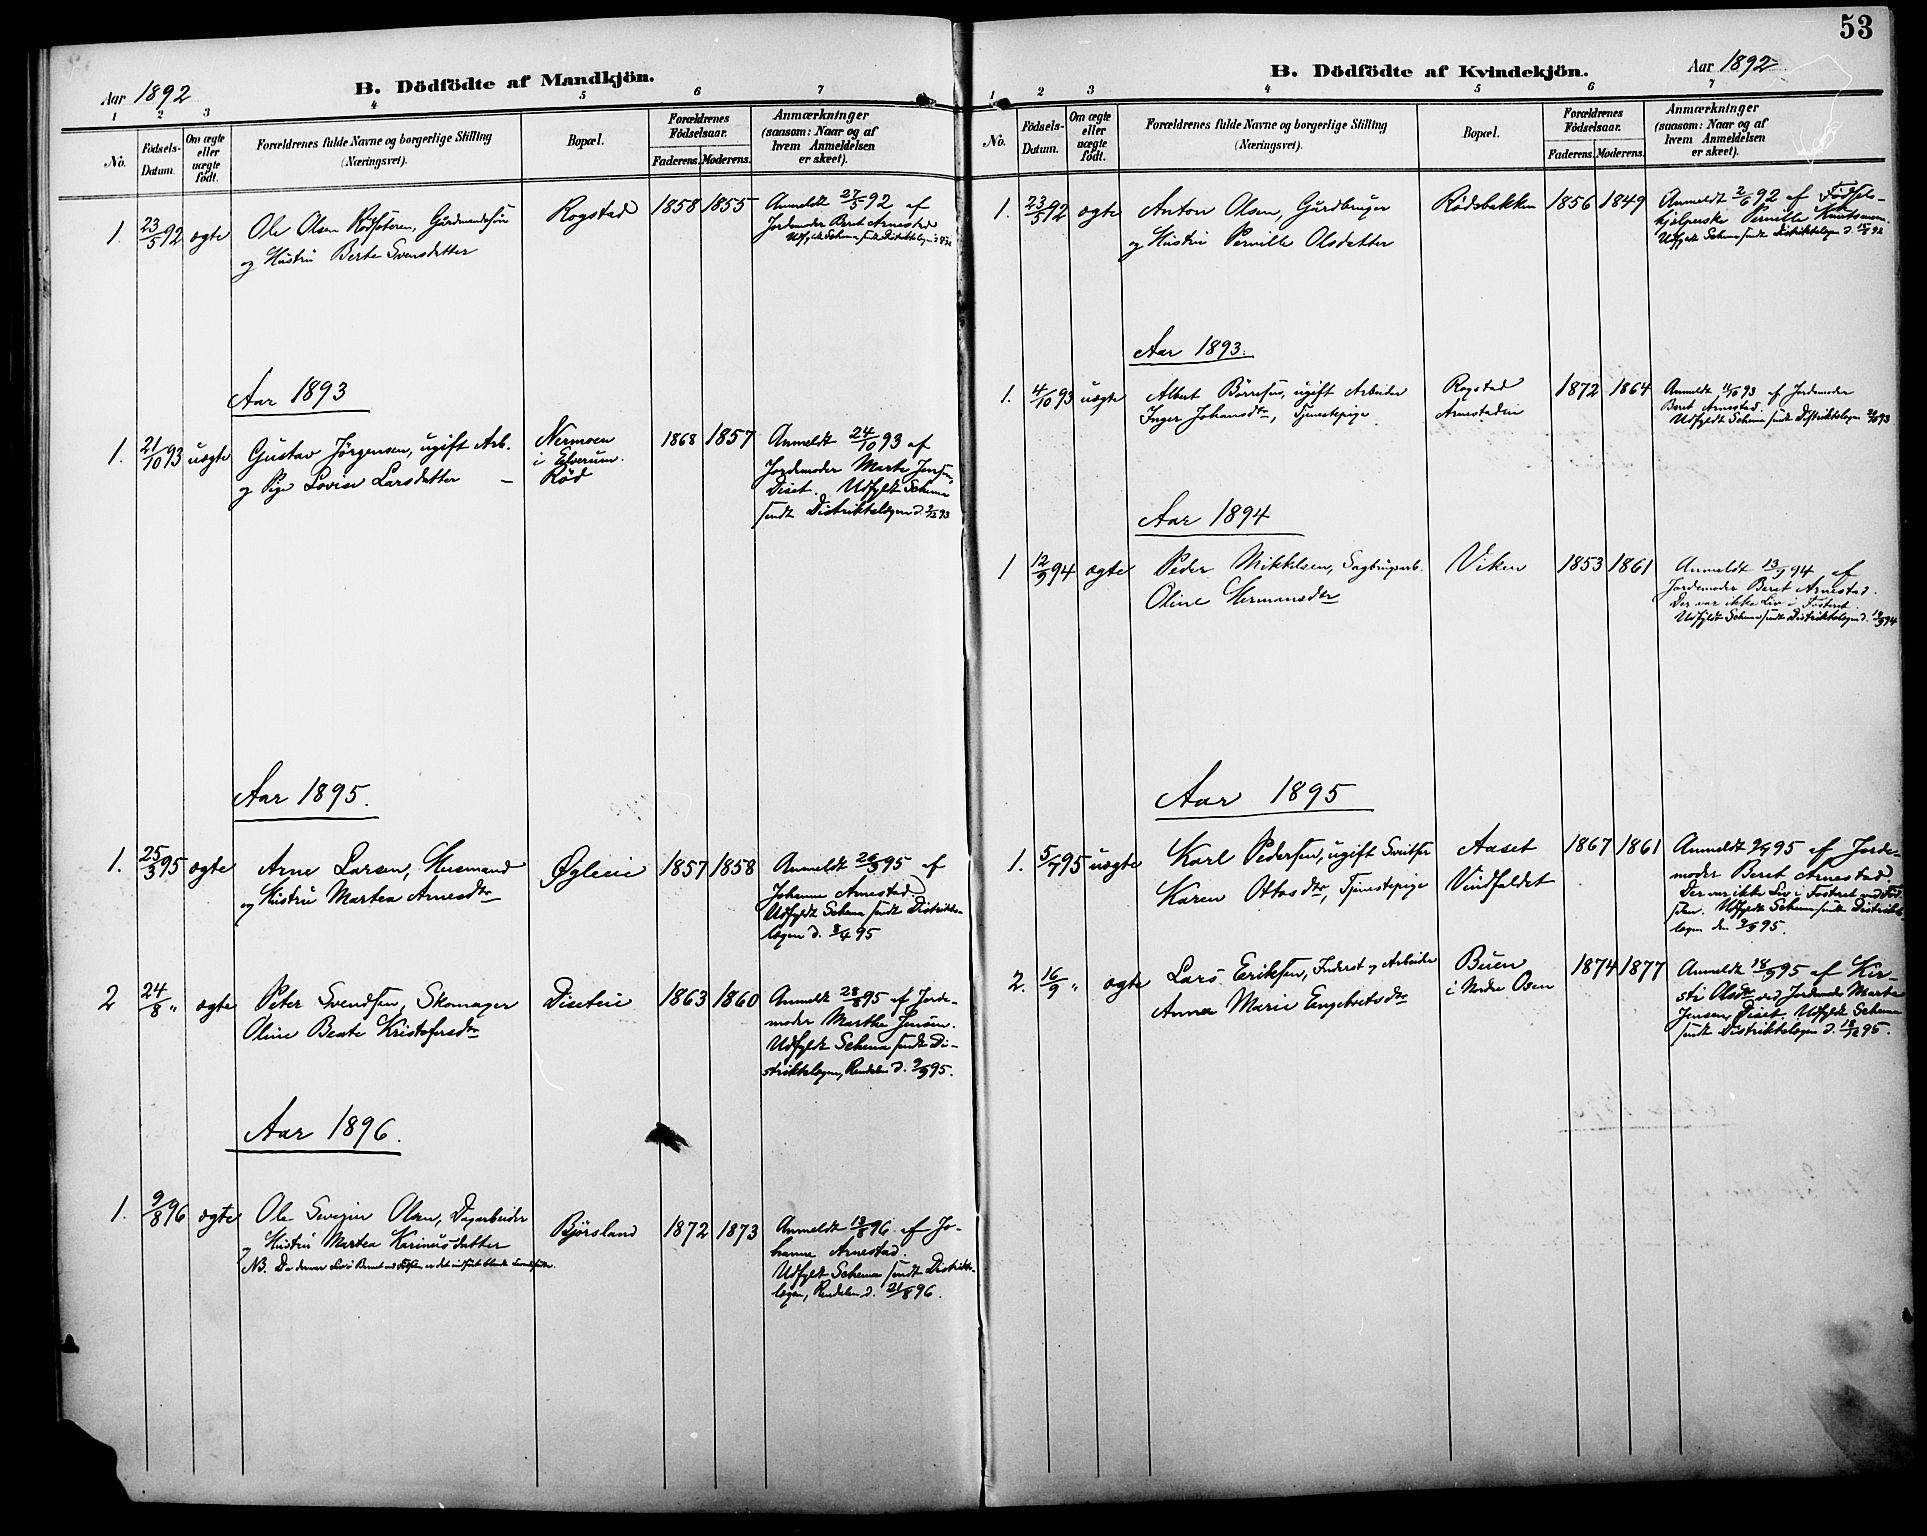 Aar 1892
B. Dödfödte af Mandkjön.
1 2 3 4 5 6 7
No.
Födsels-Datum.
Om ægte eller uægte födt.
Forældrenes fulde Navne og borgerlige Stilling (Næringsvei).
Bopæl.
Forældrenes Födselsaar.
Faderens. Moderens.
Anmærkninger (saasom: Naar og af hvem Anmeldelsen er skeet).
1. 23/5 92 ægte Ole Olsen Gaardmandssön Rogstad 1858 1855 Anmeldt 27/5 92 af
og Hustru Berte Svensdatter Jordemoder Beret Arnestad
Udfyldt Schema sendt Distriktslægen
Aar 1893
1. 21/10 93 uægte Gustav Jörgensen, ugift Arb. Nermoen 1868 1857 Anmeldt 24/10 93 af
og Pige Lovise Larsdatter – i Elverum. Jordemoder Marte Jensen
Röd Diset. Udfyldt Schema
sendt Distriktslægen d.
Aar 1895.
1. 25/3 95 ægte Arne Larsen, Husmand Øgleie 1857 1858 Anmeldt 26/3 95 af
og Hustru Martea Arnesdtr Johanne Arnestad
Udfyldt Schema sendt Distrikts-
lægen d. 3/4 95
2 24/8 " ægte Peter Svendsen, Skomager Diseteie 1863 1860 Anmeldt 28/8 95 af Jorde-
Oline Beate Kristofersdtr moder Marthe Jensen.
Udfyldt Schema sendt Di-
striktslægen, Rendalen d. 2/9 95.
Aar 1896.
1. 9/8 96 ægte Ole Severin Olsen, Dagarbeider Björsland 1872 1873 Anmeldt 13/8 96 af Jo-
og Hustru Martea Karinusdatter hanne Arnestad.
NB. Udfyldt Schema sendt Distrikts-
lægen, Rendalen d. 21/8 96.
53
B. Dödfödte af Kvindekjön.
Aar 1892
1 2 3 4 5 6 7
No.
Födsels-Datum.
Om ægte eller uægte födt.
Forældrenes fulde Navne og borgerlige Stilling (Næringsvei).
Bopæl.
Forældrenes Födselsaar.
Faderens. Moderens.
Anmærkninger (saasom: Naar og af hvem Anmeldelsen er skeet).
1. 23/5 92 ægte Anton Olsen, Gardbruger Rödsbakken 1856 1849 Anmeldt 2/6 92 af Födsels-
og Hustru Pernille Olsdatter hjelperske Pernille
Udfyldt Schema sendt Distriktslægen d.
Aar 1893.
1. 4/10 93 uægte Albert Börresen, ugift Arbeider Rogstad 1872 1864 Anmeldt 11/10 93 af Jordemoder
Inger Johansdtr, Tjenestepige Arnestadeie Beret Arnestad.
Udfyldt Schema sendt Distriktslægen
Aar 1894
1 12/9 94 ægte Peder Mikkelsen, Sagbrugsarb. Viken 1853 1861 Anmeldt 13/9 94 af
Oline Hermansdtr Jordemoder Beret Arnestad.
Der var ikke Liv i Fosteret.
Udfyldt Schema sendt Distriktslægen d.
Aar 1895
1. 95 uægte Karl Pedersen, ugift Aaset 1867 1861 Anmeldt 95 af Jorde-
Karen Ottosdtr, Tjenestepige Vindfaldet moder Beret Arnestad
Der var ikke Liv i Fosteret ved Föd-
slen. Udfyldt Schema sendt Distrikts-
lægen den 95.
2. 16/9 " ægte Lars Eriksen, Inderst og Arbeider Buen 1874 1877 Anmeldt 18/9 95 af Kir-
Anna Marie Engebretsdtr i Nordre Osen sti Olsdtr ved Jordemoder Marte
Jensen, Diset. Udfyldt Schema
sendt Distriktslægen d. 95.